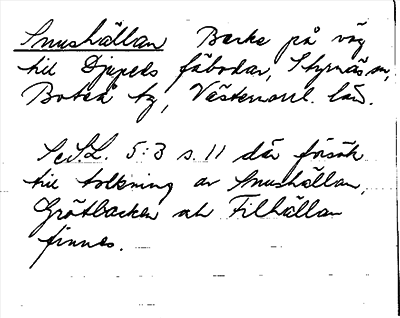 Snushällan Backe på väg
till Djupets fäbodar, Styrnäs sn,
Boteå tg, Västernorrl. län.
Se S.L. 5:3 s. 11 där försök
till tolkning av Snushällan,
Grötbacken och Filhällan
finnes.